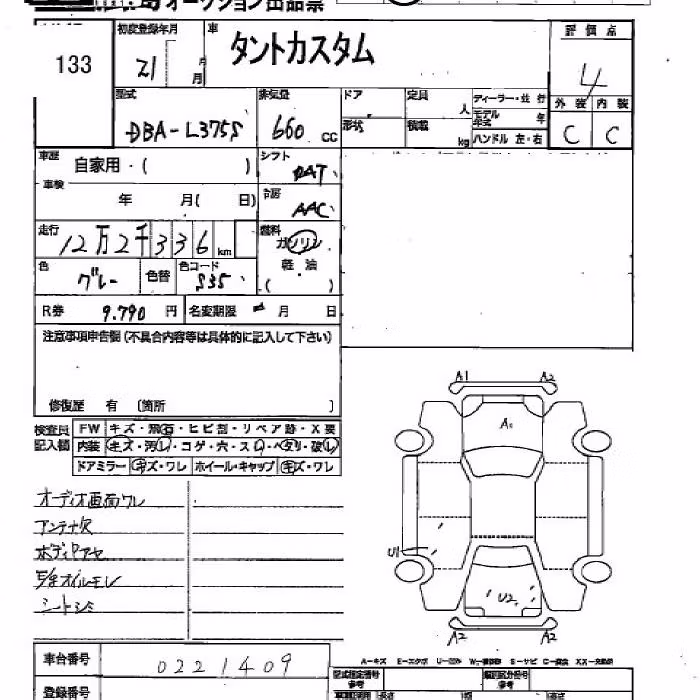 オークション出品票
133
初度登録年月
21 年 月
車
タントカスタム
評価点
4
型式
DBA-L375S
排気量
660 cc
ドア
形状
定員 人
積載 kg
ディーラー・並行
モデル年式 年
ハンドル 左・右
外装 内装
C C
車歴 自家用・( )
シフト
車検 年 月( 日)
冷房
AAC
走行 12万2千336 km
燃料 ガソリン
軽・油
( )
色 グレー
色替
色コード S35
R券 9.790 円
名変期限 月 日
注意事項申告欄(不具合内容等は具体的に記入して下さい)
修復歴 有 〔箇所 〕
検査員記入欄
FW キズ・飛石・ヒビ割・リペア跡・X要
内装 キズ・汚レ・コゲ・穴・スレ・ベタリ・破レ
ドアミラー キズ・ワレ ホイール・キャップ キズ・ワレ
オーディオ画面ワレ
アンテナ欠
シートシミ
A1 A2
U1
U2
A2 A2
車台番号 0221409
登録番号
A-キズ E-エクボ
型式指定番号 参考
類別区分番号 参考